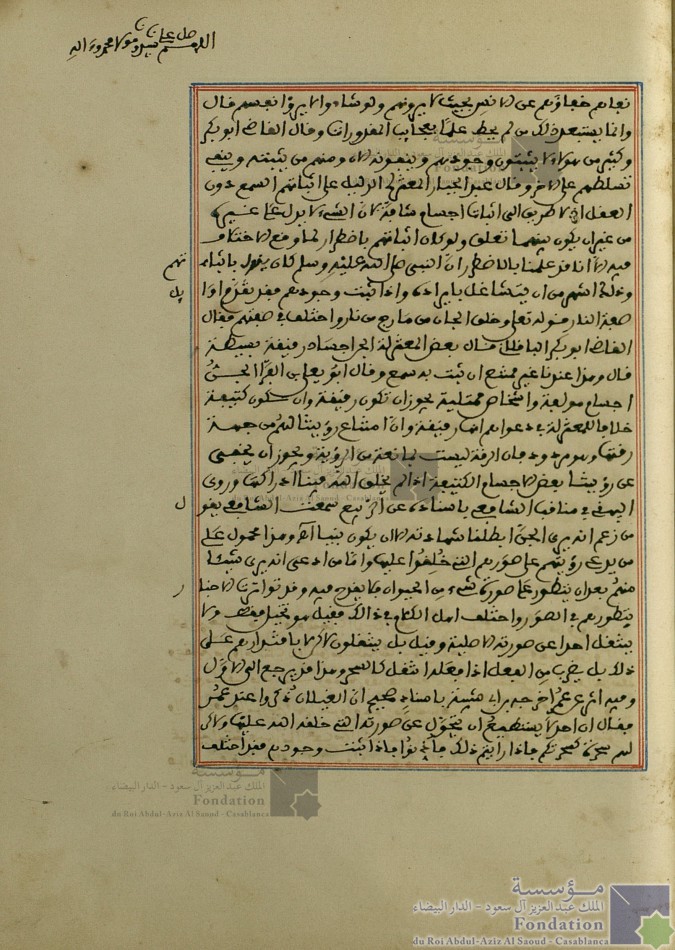 اللهم صل على سيدنا ومولانا محمد وءاله
نعلم خفاؤهم عن الانس بحيث لا يرونهم ولو شاء والا يروا انفسهم قال
وانما يستبعد ذلك من لم يحط علما بعجائب المقدورات وقال القاضي ابو بكر
وكثير من هولاء يثبتون وجودهم وينفونه الان ومنهم من يثبتهم وينفي
تسلطهم على الانس وقال عبد الجبار المعتزلي الدليل على اثباتهم السمع دون
العقل اذ لا طريق الى اثبات اجسام غائبة لان الشيء لا يدل على غيره
من غير ان يكون بينهما تعلق ولو كان اثباتهم باضطرار لما وقع الاختلاف
فيه الا انا قد علمنا بالاضطرار ان النبي صلى الله عليه وسلم كان يتدين باثباتهم
وذلك اشهر من ان يتشاغل بايراده واذا ثبت وجودهم فقد تقدم اوايل
صفة النار قوله تعلى وخلق الجان من مارج من نار واختلف في صفتهم فقال
القاضي ابو بكر الباقلاني قال بعض المعتزلة الجن اجساد رقيقة بسيطة
قال وهذا عندنا غير ممتنع ان ثبت به سمع وقال ابو يعلى بن الفرا الجن
اجسام مولفة واشخاص ممثلة يجوز ان تكون رقيقة وان تكون كثيفة
خلافا للمعتزلة في دعواهم انها رقيقة وان امتناع رؤيتنا لهم من جهة
رقتها وهو مردود فان الرقة ليست بمانعة من الرؤية ويجوز ان يخفى
عن رؤيتنا بعض الاجسام الكثيفة اذا لم يخلق الله فينا ادراكها وروى
البيهقي في مناقب الشافعي باسناده عن الربيع سمعت الشافعي يقول
من زعم انه يرى الجن ابطلنا شهادته الا ان يكون نبيا اه وهذا محمول على
من يدعي رؤيتهم على صورهم التي خلقوا عليها واما من ادعى انه يرى شيئا
منهم بعد ان يتطور على صورة شيء من الحيوان فلا يقدح فيه وقد تواترت الاخبار
بتطورهم في الصور واختلف اهل الكلام في ذلك فقيل هو تخييل فقط ولا
ينتقل احد عن صورته الاصلية وقيل بل ينتقلون لاكن لا باقتدارهم على
ذلك بل بضرب من الفعل اذا فعله انتقل كالسحر وهذا قد يرجع الى الاول
وفيه اثر عن عمر اخرجه ابن ابي شيبة باسناد صحيح ان الغيلان ذكروا عند عمر
فقال ان احدا لا يستطيع ان يتحول عن صورته التي خلقه الله عليها ولاكن
لهم سحرة كسحرتكم فاذا رايتم ذلك فاذنوا فاذا ثبت وجودهم فقد اختلف
مؤسسة
الملك عبد العزيز آل سعود - الدار البيضاء
Fondation
du Roi Abdul-Aziz Al Saoud - Casablanca
مؤسسة
الملك عبد العزيز آل سعود - الدار البيضاء
Fondation
du Roi Abdul-Aziz Al Saoud - Casablanca